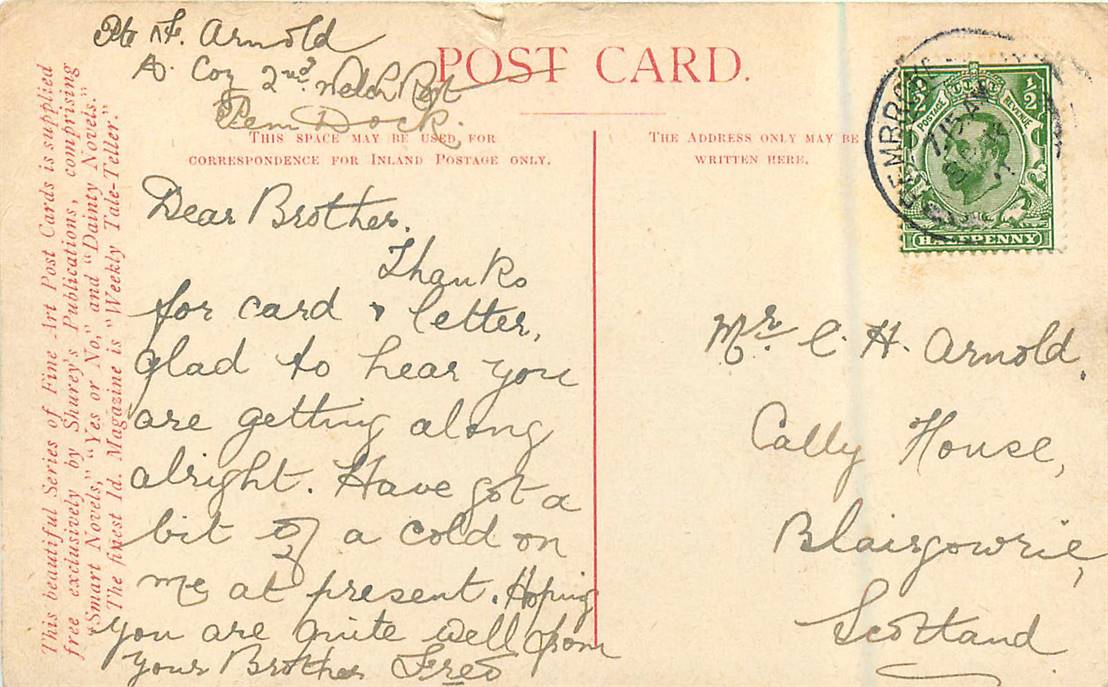 Pte F. Arnold
A. Coy 2nd Welch Regt
Pem Dock.
POST CARD.
THIS SPACE MAY BE USED FOR
CORRESPONDENCE FOR INLAND POSTAGE ONLY.
THE ADDRESS ONLY MAY BE
WRITTEN HERE.
Dear Brother.
Thanks
for card & letter,
glad to hear you
are getting along
alright. Have got a
bit of a cold on
me at present. Hoping
you are quite well from
your Brother Fred
Mr. C. H. Arnold.
Cally House,
Blairgowrie,
Scotland
This beautiful Series of Fine Art Post Cards is supplied
free exclusively by Shurey's Publications, comprising
"Smart Novels," "Yes or No," and "Dainty Novels."
The finest 1d. Magazine is "Weekly Tale-Teller."
½ ½
POSTAGE REVENUE
HALFPENNY
PEMBROKE
7.15